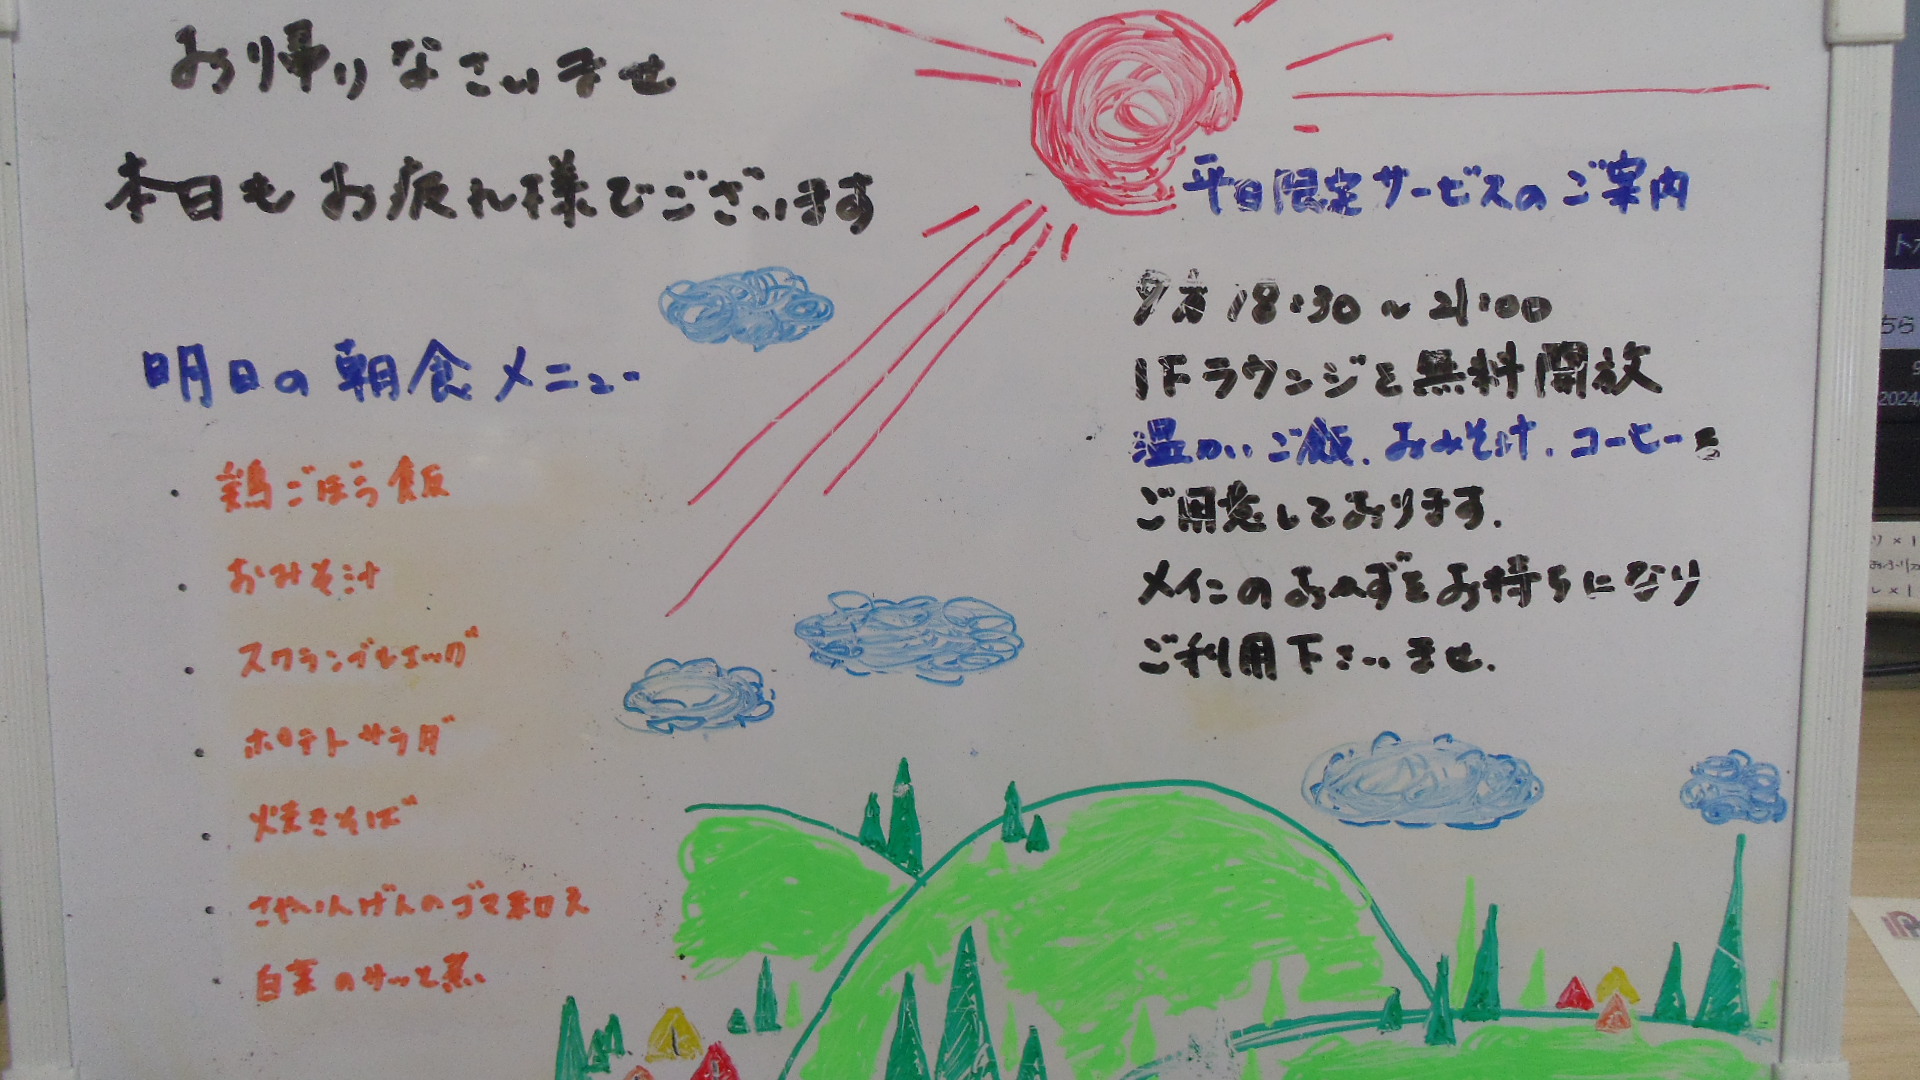 お帰りなさいませ
本日もお疲れ様でございます
明日の朝食メニュー
・鶏ごぼう飯
・おみそ汁
・スクランブルエッグ
・ポテトサラダ
・焼きそば
・さやいんげんのゴマネロス
・白菜のサッと煮
平日限定サービスのご案内
夕方 18:30～21:00
1Fラウンジを無料開放
温かいご飯、おみそ汁、コーヒーを
ご用意しております。
メインのおかずをお持ちになり
ご利用下さいませ。
2024